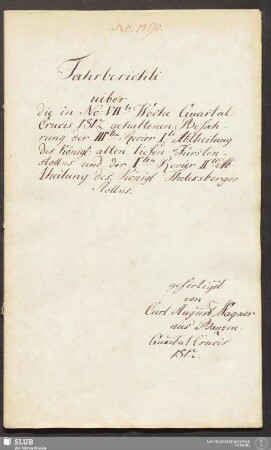 No: 1390.
Fahrberichte
ueber
die in No: VIIter Woche Quartal
Crucis 1812 gehaltenen Befah-
rung der IIIten Revier Ite Abtheilung
des Königl. alten tiefen Fürsten
stollns und der Iten Revier IIte Ab
theilung des Königl. Thelersberger
Stollns.
gefertigt
von
Carl August Wagner
aus
Quartal Crucis
1812.
SLUB